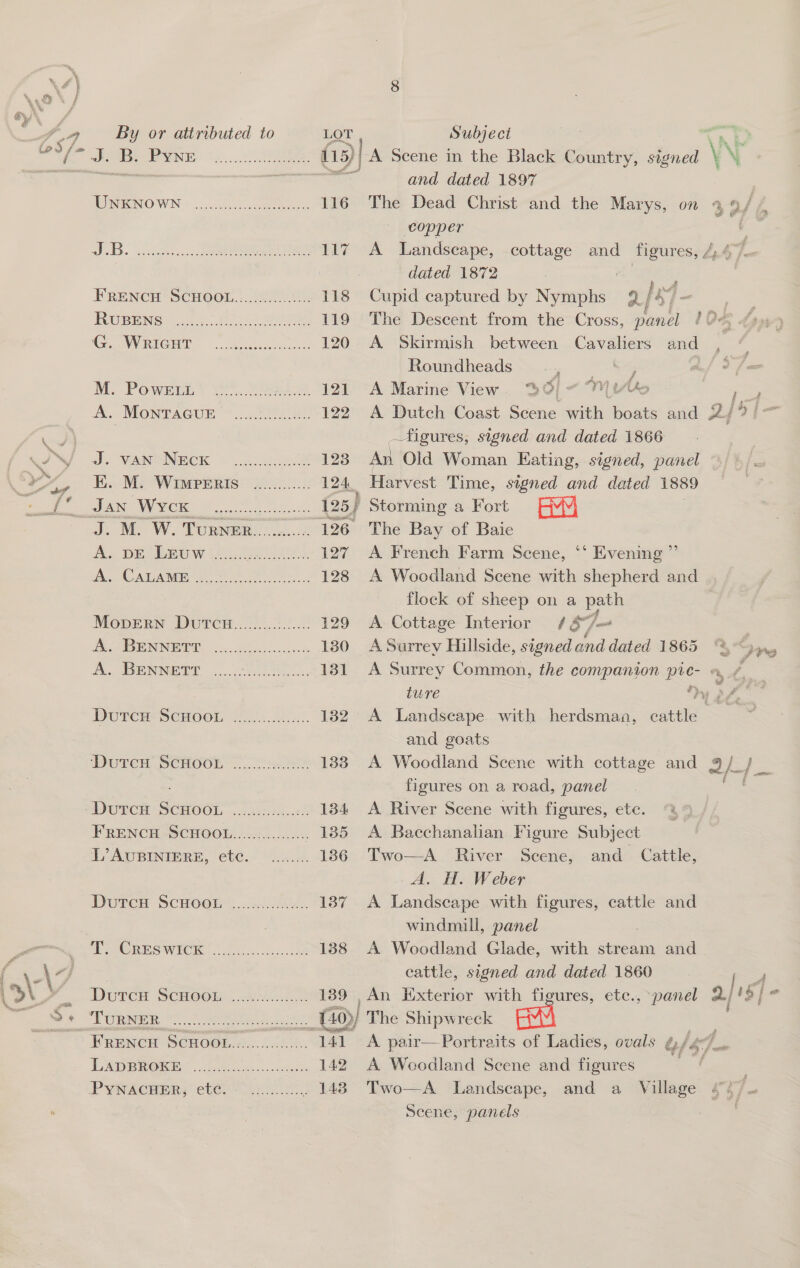 8
By or attributed to LOT Subject
J. B. PYNE 115 A Scene in the Black Country, signed
and dated 1897
UNKNOWN 116 The Dead Christ and the Marys, on
copper
J.B. 117 A Landscape, cottage and figures,
dated 1872
FRENCH SCHOOL 118 Cupid captured by Nymphs
RUBENS 119 The Descent from the Cross, panel
G. WRIGHT 120 A Skirmish between Cavaliers and
Roundheads
M. POWELL 121 A Marine View
A. MONTAGUE 122 A Dutch Coast Scene with boats and
figures, signed and dated 1866
J. VAN NECK 123 An Old Woman Eating, signed, panel
E. M. WIMPERIS 124 Harvest Time, signed and dated 1889
JAN WYCK 125 Storming a Fort
J. M. W. TURNER 126 The Bay of Baie
A. DE LEUW 127 A French Farm Scene, “Evening”
A. CALAME 128 A Woodland Scene with shepherd and
flock of sheep on a path
MODERN DUTCH 129 A Cottage Interior
A. BENNETT 130 A Surrey Hillside, signed and dated 1865
A. BENNETT 131 A Surrey Common, the companion pic-
ture
DUTCH SCHOOL 132 A Landscape with herdsman, cattle
and goats
DUTCH SCHOOL 133 A Woodland Scene with cottage and
figures on a road, panel
DUTCH SCHOOL 134 A River Scene with figures, etc.
FRENCH SCHOOL 135 A Bacchanalian Figure Subject
L'AUBINIERE, etc. 136 Two—A River Scene, and Cattle,
A. H. Weber
DUTCH SCHOOL 137 A Landscape with figures, cattle and
windmill, panel
T. CRESWICK 138 A Woodland Glade, with stream and
cattle, signed and dated 1860
DUTCH SCHOOL 139 An Exterior with figures, etc., panel
TURNER 140 The Shipwreck
FRENCH SCHOOL 141 A pair—Portraits of Ladies, ovals
LADBROKE 142 A Woodland Scene and figures
PYNACHER, etc. 143 Two—A Landscape, and a Village
Scene, panels